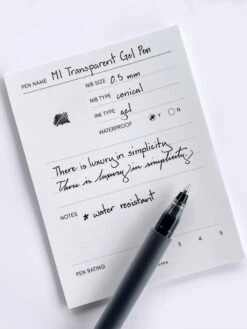 PEN NAME M1 Transparent Gel Pen
NIB SIZE 0.5 mm
NIB TYPE conical
INK TYPE gel
WATERPROOF Y N
There is luxury in simplicity
There is luxury in simplicity
NOTES ★ water resistant
3 4 5
PEN RATING